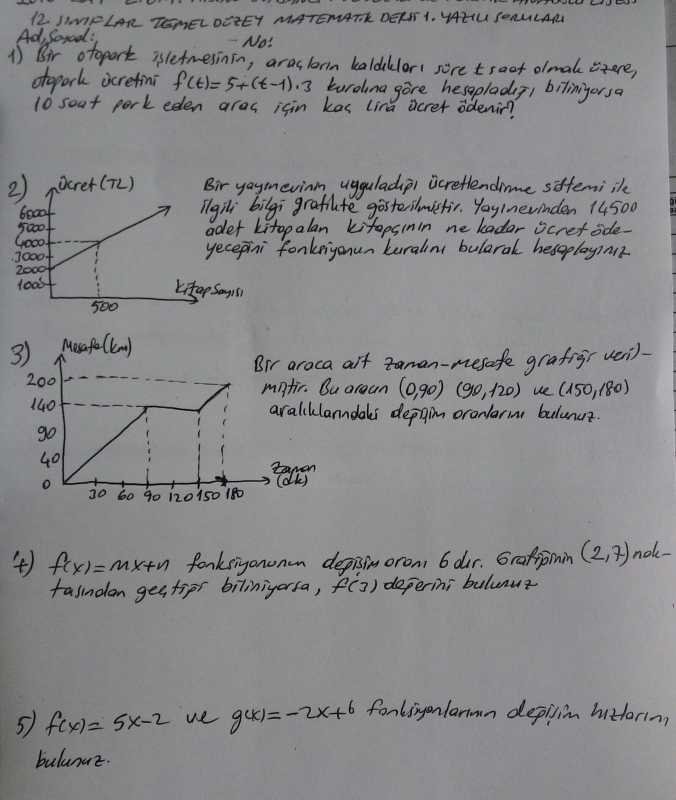 12. SINIFLAR TEMEL DÜZEY MATEMATİK DERSİ 1. YAZILI SORULARI
Ad, Soyad: - No:
1) Bir otopark işletmesinin, araçların kaldıkları süre t saat olmak üzere,
otopark ücretini f(t)=5+(t-1).3 kuralına göre hesapladığı biliniyorsa
10 saat park eden araç için kaç lira ücret ödenir?
2) Ücret (TL)
6000
5000
4000
3000
2000
1000
500
Kitap sayısı
Bir yayınevinin uyguladığı ücretlendirme sistemi ile
ilgili bilgi grafikte gösterilmiştir. Yayınevinden 14500
adet kitap alan kitapçının ne kadar ücret öde-
yeceğini fonksiyonun kuralını bularak hesaplayınız
3) Mesafe (km)
200
140
90
40
0
30 60 90 120 150 180
Zaman
(dk)
Bir araca ait zaman-mesafe grafiği veril-
miştir. Bu aracın (0,90) (90,120) ve (150,180)
aralıklarındaki değişim oranlarını bulunuz.
4) f(x)=mx+n fonksiyonunun değişim oranı 6 dır. Grafiğinin (2,7) nok-
tasından geçtiği biliniyorsa, f(3) değerini bulunuz
5) f(x)= 5x-2 ve g(x)=-2x+6 fonksiyonlarının değişim hızlarını
bulunuz.